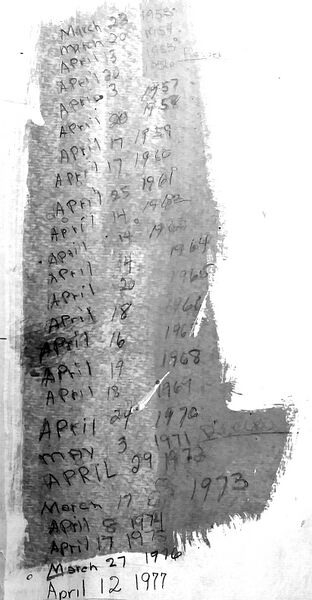 March 23 1953
March 20 1954
April 3 1955
April 20 1956
April 3 1957
April 20 1958
April 17 1959
April 17 1960
April 25 1961
April 14 1962
April 14 1963
April 14 1964
April 20 1965
April 18 1966
April 16 1967
April 19 1968
April 18 1969
April 24 1970
MAY 3 1971
APRIL 29 1972
March 17 1973
April 8 1974
April 17 1975
March 27 1976
April 12 1977